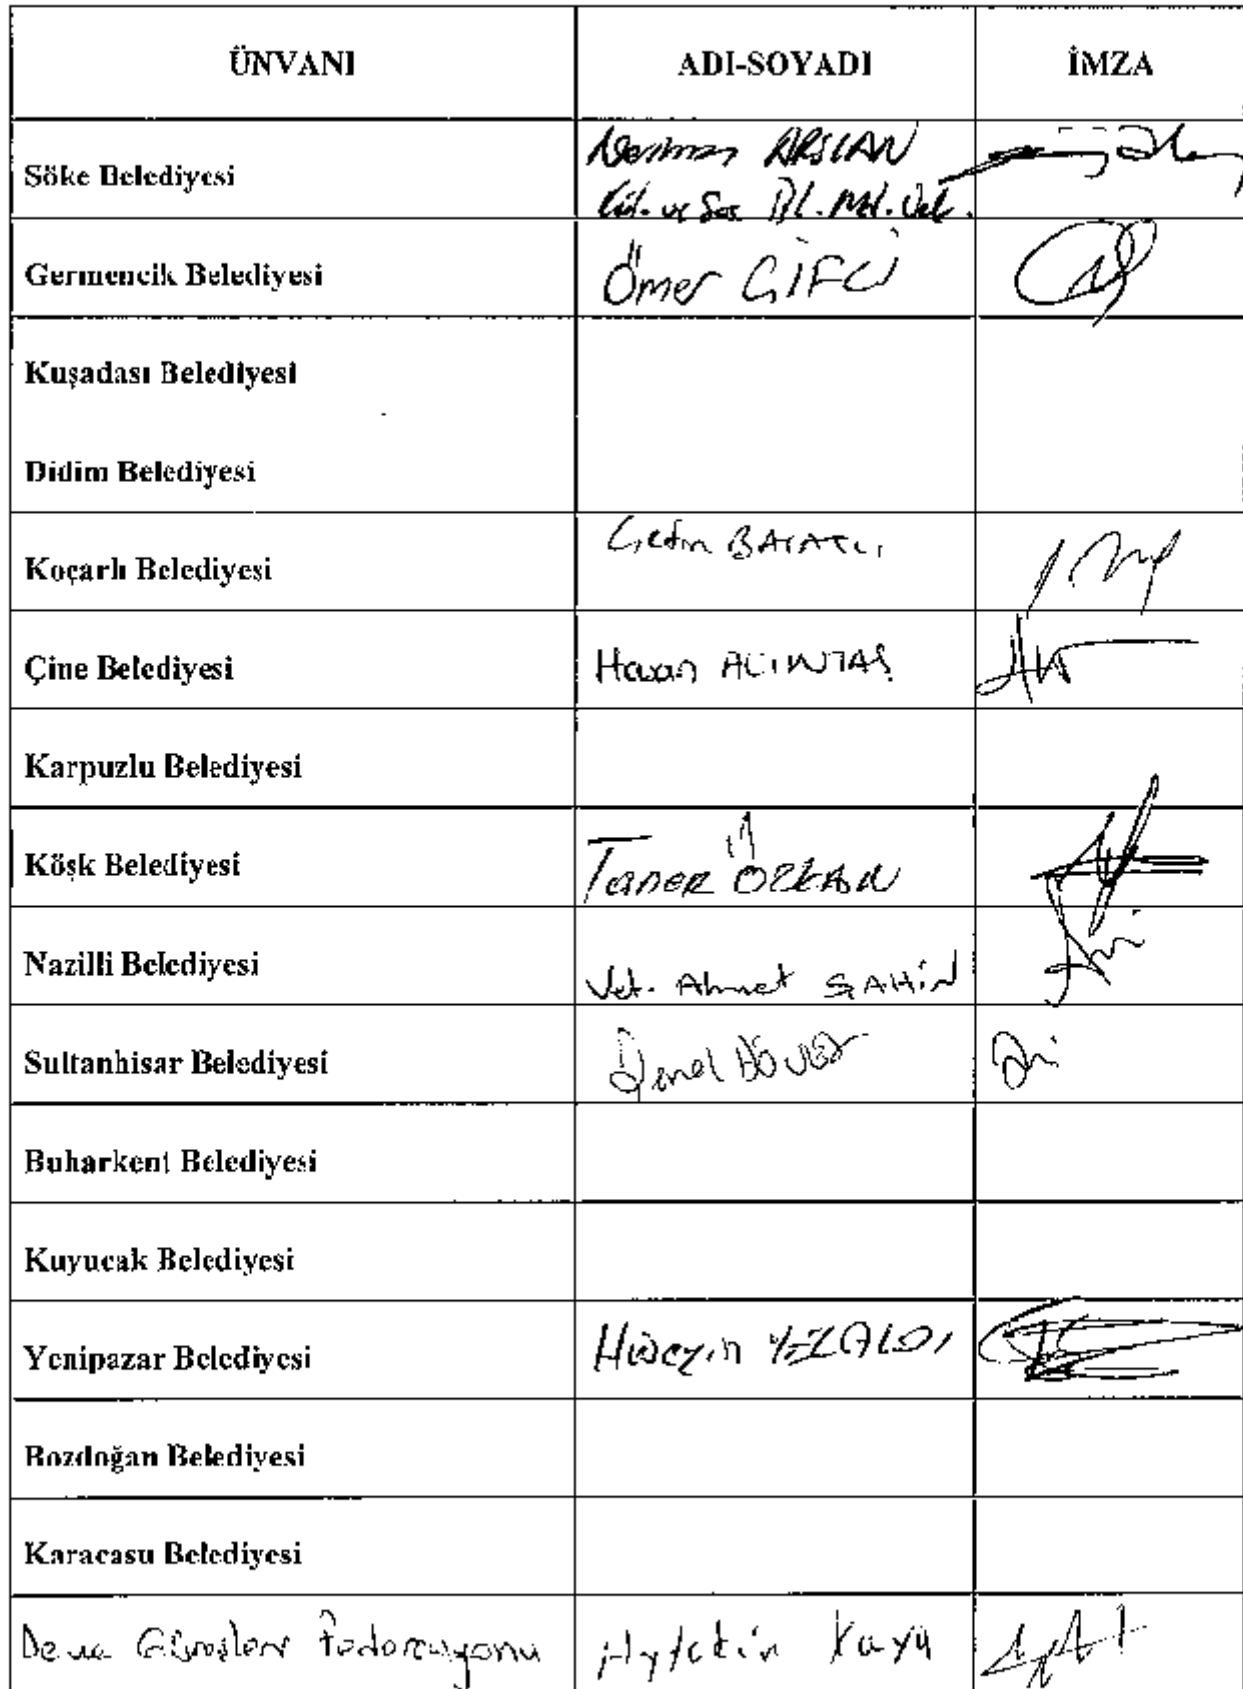 ÜNVANI ADI-SOYADI İMZA
Söke Belediyesi Neriman ARSLAN
Kül. ve Sos İşl. Md. Vek.
Germencik Belediyesi Ömer ÇİFCİ
Kuşadası Belediyesi
Didim Belediyesi
Koçarlı Belediyesi Çetin
Çine Belediyesi Hasan ALTINTAŞ
Karpuzlu Belediyesi
Köşk Belediyesi Taner ÖZKAN
Nazilli Belediyesi Vet. Ahmet ŞAHİN
Sultanhisar Belediyesi
Buharkent Belediyesi
Kuyucak Belediyesi
Yenipazar Belediyesi Hüseyin
Bozdoğan Belediyesi
Karacasu Belediyesi
Deve Güreşleri Federasyonu Aytekin Kaya